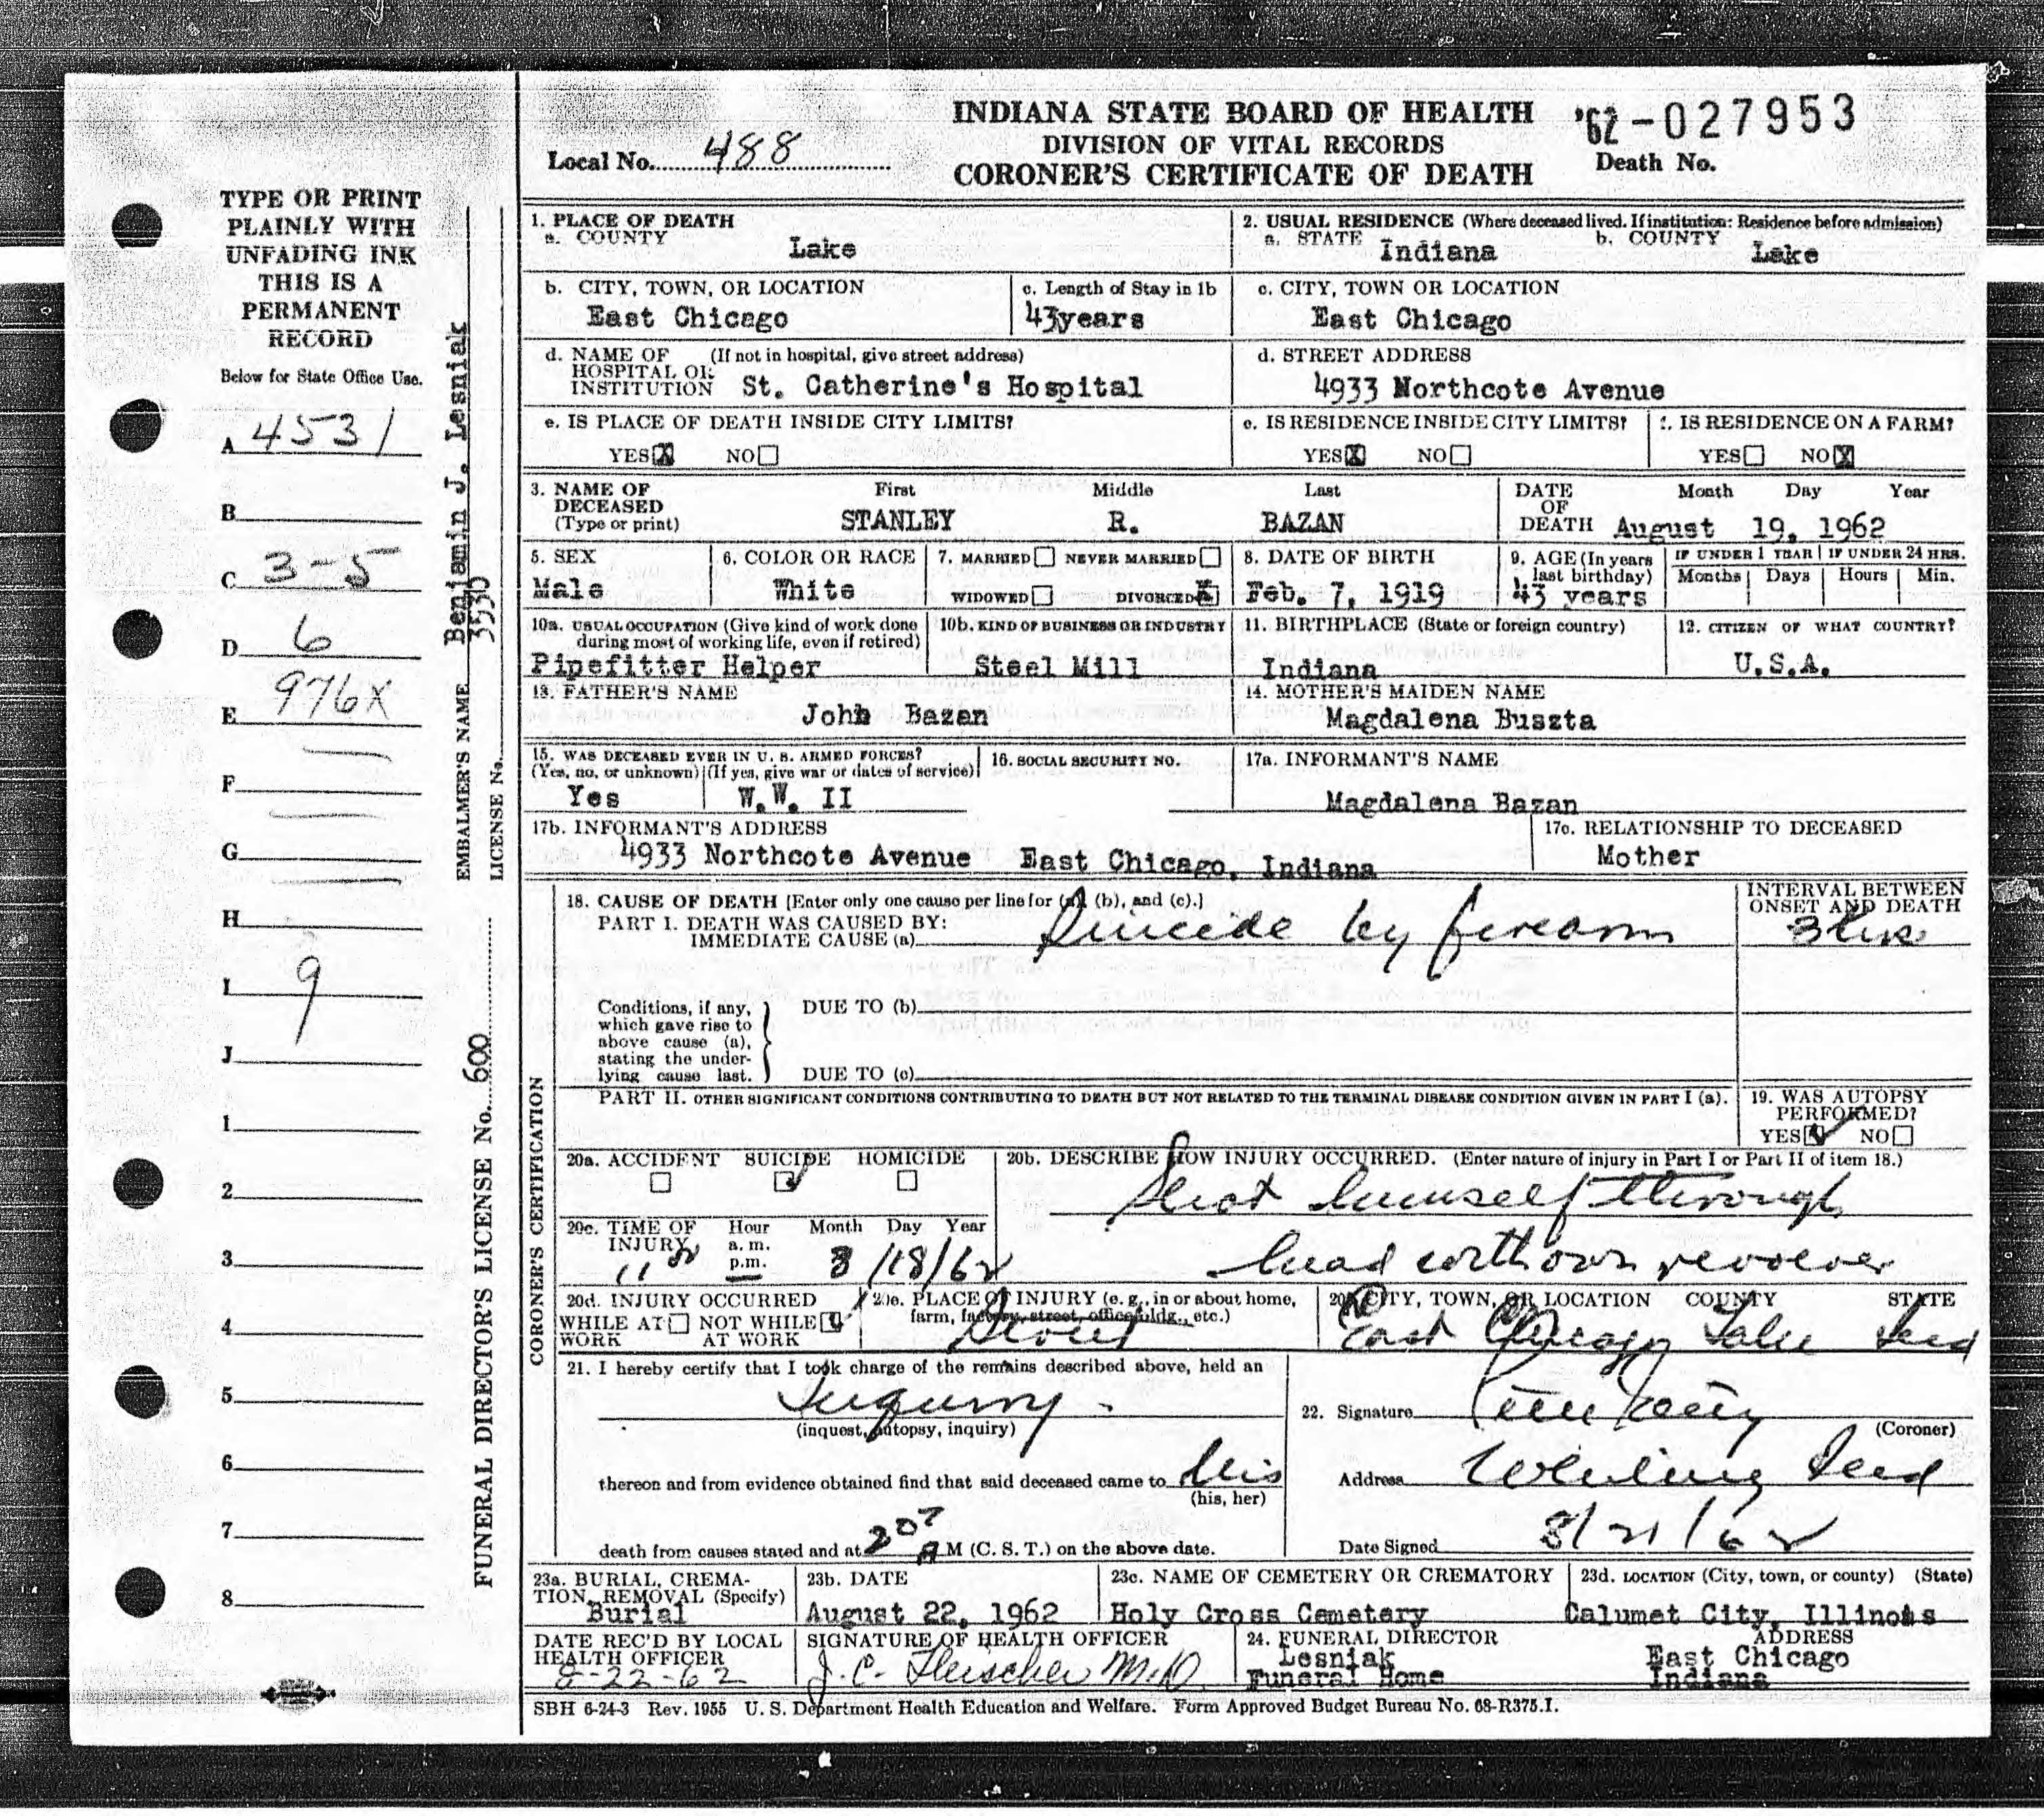 INDIANA STATE BOARD OF HEALTH
DIVISION OF VITAL RECORDS
CORONER'S CERTIFICATE OF DEATH
Local No. 488
'62-027953
Death No.
TYPE OR PRINT
PLAINLY WITH
UNFADING INK
THIS IS A
PERMANENT
RECORD
Below for State Office Use.
A 4531
B
C 3-5
D 6
E 976X
F
G
H
I 9
J
1
2
3
4
5
6
7
8
EMBALMER'S NAME Benjamin J. Lesniak
LICENSE No. 3530
FUNERAL DIRECTOR'S LICENSE No. 600
1. PLACE OF DEATH
a. COUNTY Lake
2. USUAL RESIDENCE (Where deceased lived. If institution: Residence before admission)
a. STATE Indiana b. COUNTY Lake
b. CITY, TOWN, OR LOCATION
East Chicago
c. Length of Stay in 1b
43years
c. CITY, TOWN OR LOCATION
East Chicago
d. NAME OF HOSPITAL OR INSTITUTION (If not in hospital, give street address)
St. Catherine's Hospital
d. STREET ADDRESS
4933 Northcote Avenue
e. IS PLACE OF DEATH INSIDE CITY LIMITS?
YES X NO
e. IS RESIDENCE INSIDE CITY LIMITS?
YES X NO
f. IS RESIDENCE ON A FARM?
YES NO X
3. NAME OF DECEASED (Type or print)
First Middle Last
STANLEY R. BAZAN
DATE OF DEATH
Month Day Year
August 19, 1962
5. SEX
Male
6. COLOR OR RACE
White
7. MARRIED NEVER MARRIED
WIDOWED DIVORCED X
8. DATE OF BIRTH
Feb. 7, 1919
9. AGE (In years last birthday)
43 years
IF UNDER 1 YEAR IF UNDER 24 HRS.
Months Days Hours Min.
10a. USUAL OCCUPATION (Give kind of work done during most of working life, even if retired)
Pipefitter Helper
10b. KIND OF BUSINESS OR INDUSTRY
Steel Mill
11. BIRTHPLACE (State or foreign country)
Indiana
12. CITIZEN OF WHAT COUNTRY?
U.S.A.
13. FATHER'S NAME
John Bazan
14. MOTHER'S MAIDEN NAME
Magdalena Buszta
15. WAS DECEASED EVER IN U. S. ARMED FORCES?
(Yes, no, or unknown) (If yes, give war or dates of service)
Yes W.W. II
16. SOCIAL SECURITY NO.
17a. INFORMANT'S NAME
Magdalena Bazan
17b. INFORMANT'S ADDRESS
4933 Northcote Avenue East Chicago, Indiana
17c. RELATIONSHIP TO DECEASED
Mother
CORONER'S CERTIFICATION
18. CAUSE OF DEATH [Enter only one cause per line for (a), (b), and (c).]
PART I. DEATH WAS CAUSED BY:
IMMEDIATE CAUSE (a) Suicide by firearm
INTERVAL BETWEEN ONSET AND DEATH
3 hrs
Conditions, if any, which gave rise to above cause (a), stating the underlying cause last.
DUE TO (b)
DUE TO (c)
PART II. OTHER SIGNIFICANT CONDITIONS CONTRIBUTING TO DEATH BUT NOT RELATED TO THE TERMINAL DISEASE CONDITION GIVEN IN PART I (a).
19. WAS AUTOPSY PERFORMED?
YES ✓ NO
20a. ACCIDENT SUICIDE ✓ HOMICIDE
20b. DESCRIBE HOW INJURY OCCURRED. (Enter nature of injury in Part I or Part II of item 18.)
Shot himself through
head with own revolver
20c. TIME OF INJURY Hour a. m. p.m. Month Day Year
8/18/62
20d. INJURY OCCURRED
WHILE AT WORK NOT WHILE AT WORK ✓
20e. PLACE OF INJURY (e. g., in or about home, farm, factory, street, office bldg., etc.)
20f. CITY, TOWN, OR LOCATION COUNTY STATE
East Chicago Lake Ind
21. I hereby certify that I took charge of the remains described above, held an
Inquiry
(inquest, autopsy, inquiry)
thereon and from evidence obtained find that said deceased came to his
(his, her)
death from causes stated and at A M (C. S. T.) on the above date.
22. Signature
(Coroner)
Address Whiting Ind
Date Signed 8/21/62
23a. BURIAL, CREMATION, REMOVAL (Specify)
Burial
23b. DATE
August 22, 1962
23c. NAME OF CEMETERY OR CREMATORY
Holy Cross Cemetery
23d. LOCATION (City, town, or county) (State)
Calumet City, Illinois
DATE REC'D BY LOCAL HEALTH OFFICER
8-22-62
SIGNATURE OF HEALTH OFFICER
J. C. Fleischer M.D.
24. FUNERAL DIRECTOR
Lesniak
Funeral Home
ADDRESS
East Chicago
Indiana
SBH 6-24-3 Rev. 1955 U. S. Department Health Education and Welfare. Form Approved Budget Bureau No. 68-R375.I.